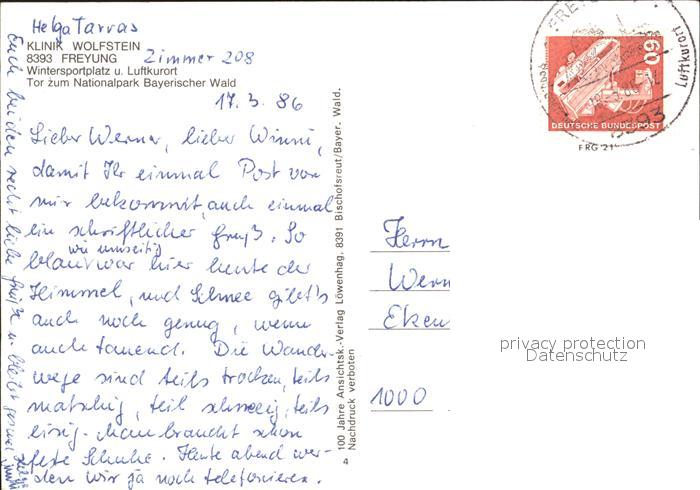 Helga Tarras
KLINIK WOLFSTEIN
8393 FREYUNG Zimmer 208
Wintersportplatz u. Luftkurort
Tor zum Nationalpark Bayerischer Wald
17. 3. 86
Lieber Werner, lieber Winni,
damit Ihr einmal Post von
mir bekommt, auch einmal
ein schriftlicher Gruß. So
wie umseitig
blau war hier heute der
Himmel, und Schnee gibt's
auch noch genug, wenn
auch tauend. Die Wander-
wege sind teils trocken, teils
matschig, teil schneeig, teils
eisig. Man braucht schon
feste Schuhe. Heute abend wer-
den wir ja noch telefonieren.
Euch beiden recht liebe Grüße u. bleibt gesund
Helga
100 Jahre Ansichtsk.-Verlag Löwenhag, 8391 Bischofsreut/Bayer. Wald.
Nachdruck verboten
4
60
DEUTSCHE BUNDESPOST
8393
Luftkurort
FRG 21
Herrn
Wern
Eken
1000
privacy protection
Datenschutz